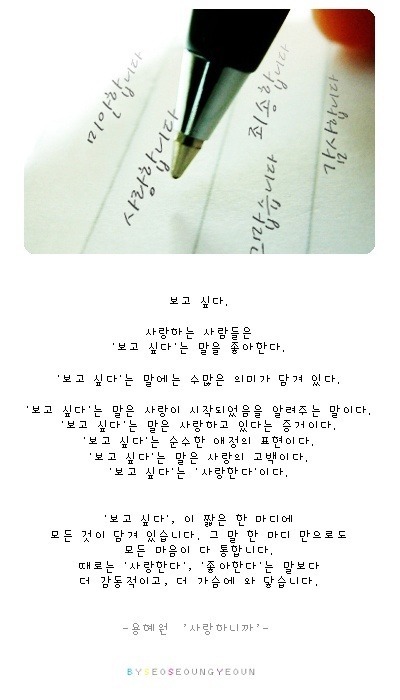 미안합니다
사랑합니다
죄송합니다
고맙습니다
감사합니다
보고 싶다.
사랑하는 사람들은
'보고 싶다'는 말을 좋아한다.
'보고 싶다'는 말에는 수많은 의미가 담겨 있다.
'보고 싶다'는 말은 사랑이 시작되었음을 알려주는 말이다.
'보고 싶다'는 말은 사랑하고 있다는 증거이다.
'보고 싶다'는 순수한 애정의 표현이다.
'보고 싶다'는 말은 사랑의 고백이다.
'보고 싶다'는 '사랑한다'이다.
'보고 싶다', 이 짧은 한 마디에
모든 것이 담겨 있습니다. 그 말 한 마디 만으로도
모든 마음이 다 통합니다.
때로는 '사랑한다', '좋아한다'는 말보다
더 감동적이고, 더 가슴에 와 닿습니다.
-용혜원 '사랑하니까'-
BYSEOSEOUNGYEOUN